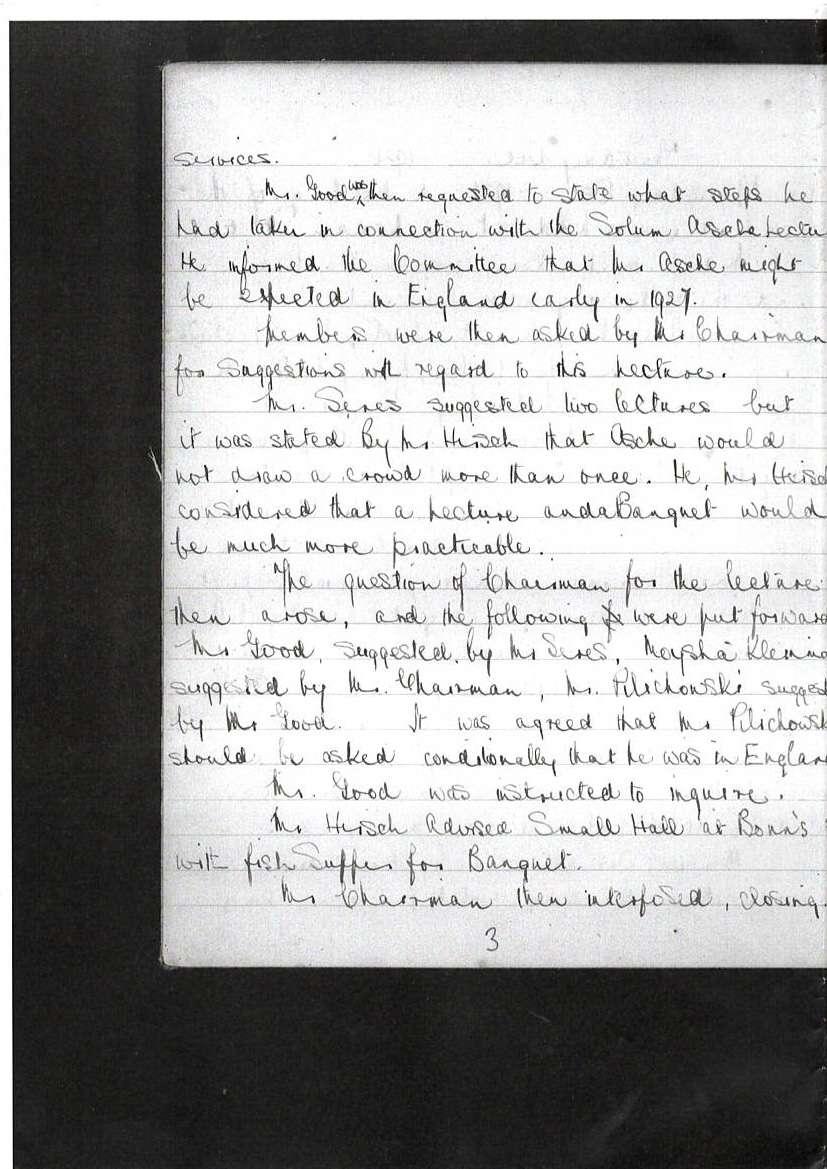 services.
Mr. Good was then requested to state what steps he
had taken in connection with the Solum Asche Lectu
He informed the Committee that Mr Asche might
be expected in England early in 1927.
Members were then asked by Mr Chairman
for suggestions with regard to this Lecture.
Mr. Seres suggested two lectures but
it was stated By Mr Hirsch that Asche would
not draw a crowd more than once. He, Mr Hirsc
considered that a Lecture and a Banquet would
be much more practicable.
The question of Chairman for the lecture
then arose, and the following were put forward
Mr Good, suggested by Mr Seres, Moysha Klemin
suggested by Mr. Chairman, Mr. Pilichowski sugges
by Mr Good. It was agreed that Mr Pilichowsk
should be asked conditionally that he was in Englan
Mr. Good was instructed to inquire.
Mr Hirsch Advised Small Hall at Bonn's
with fish Supper for Banquet.
Mr Chairman then interposed, closing
3